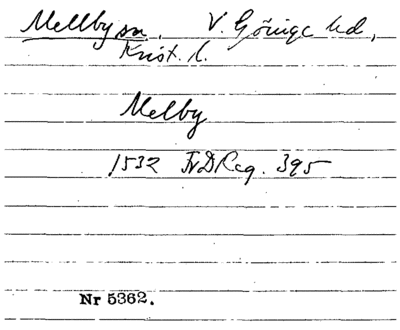 Mellby sn., V. Göinge hd,
Krist. l.
Melby
1532 FrDReg. 395
Nr 5362.